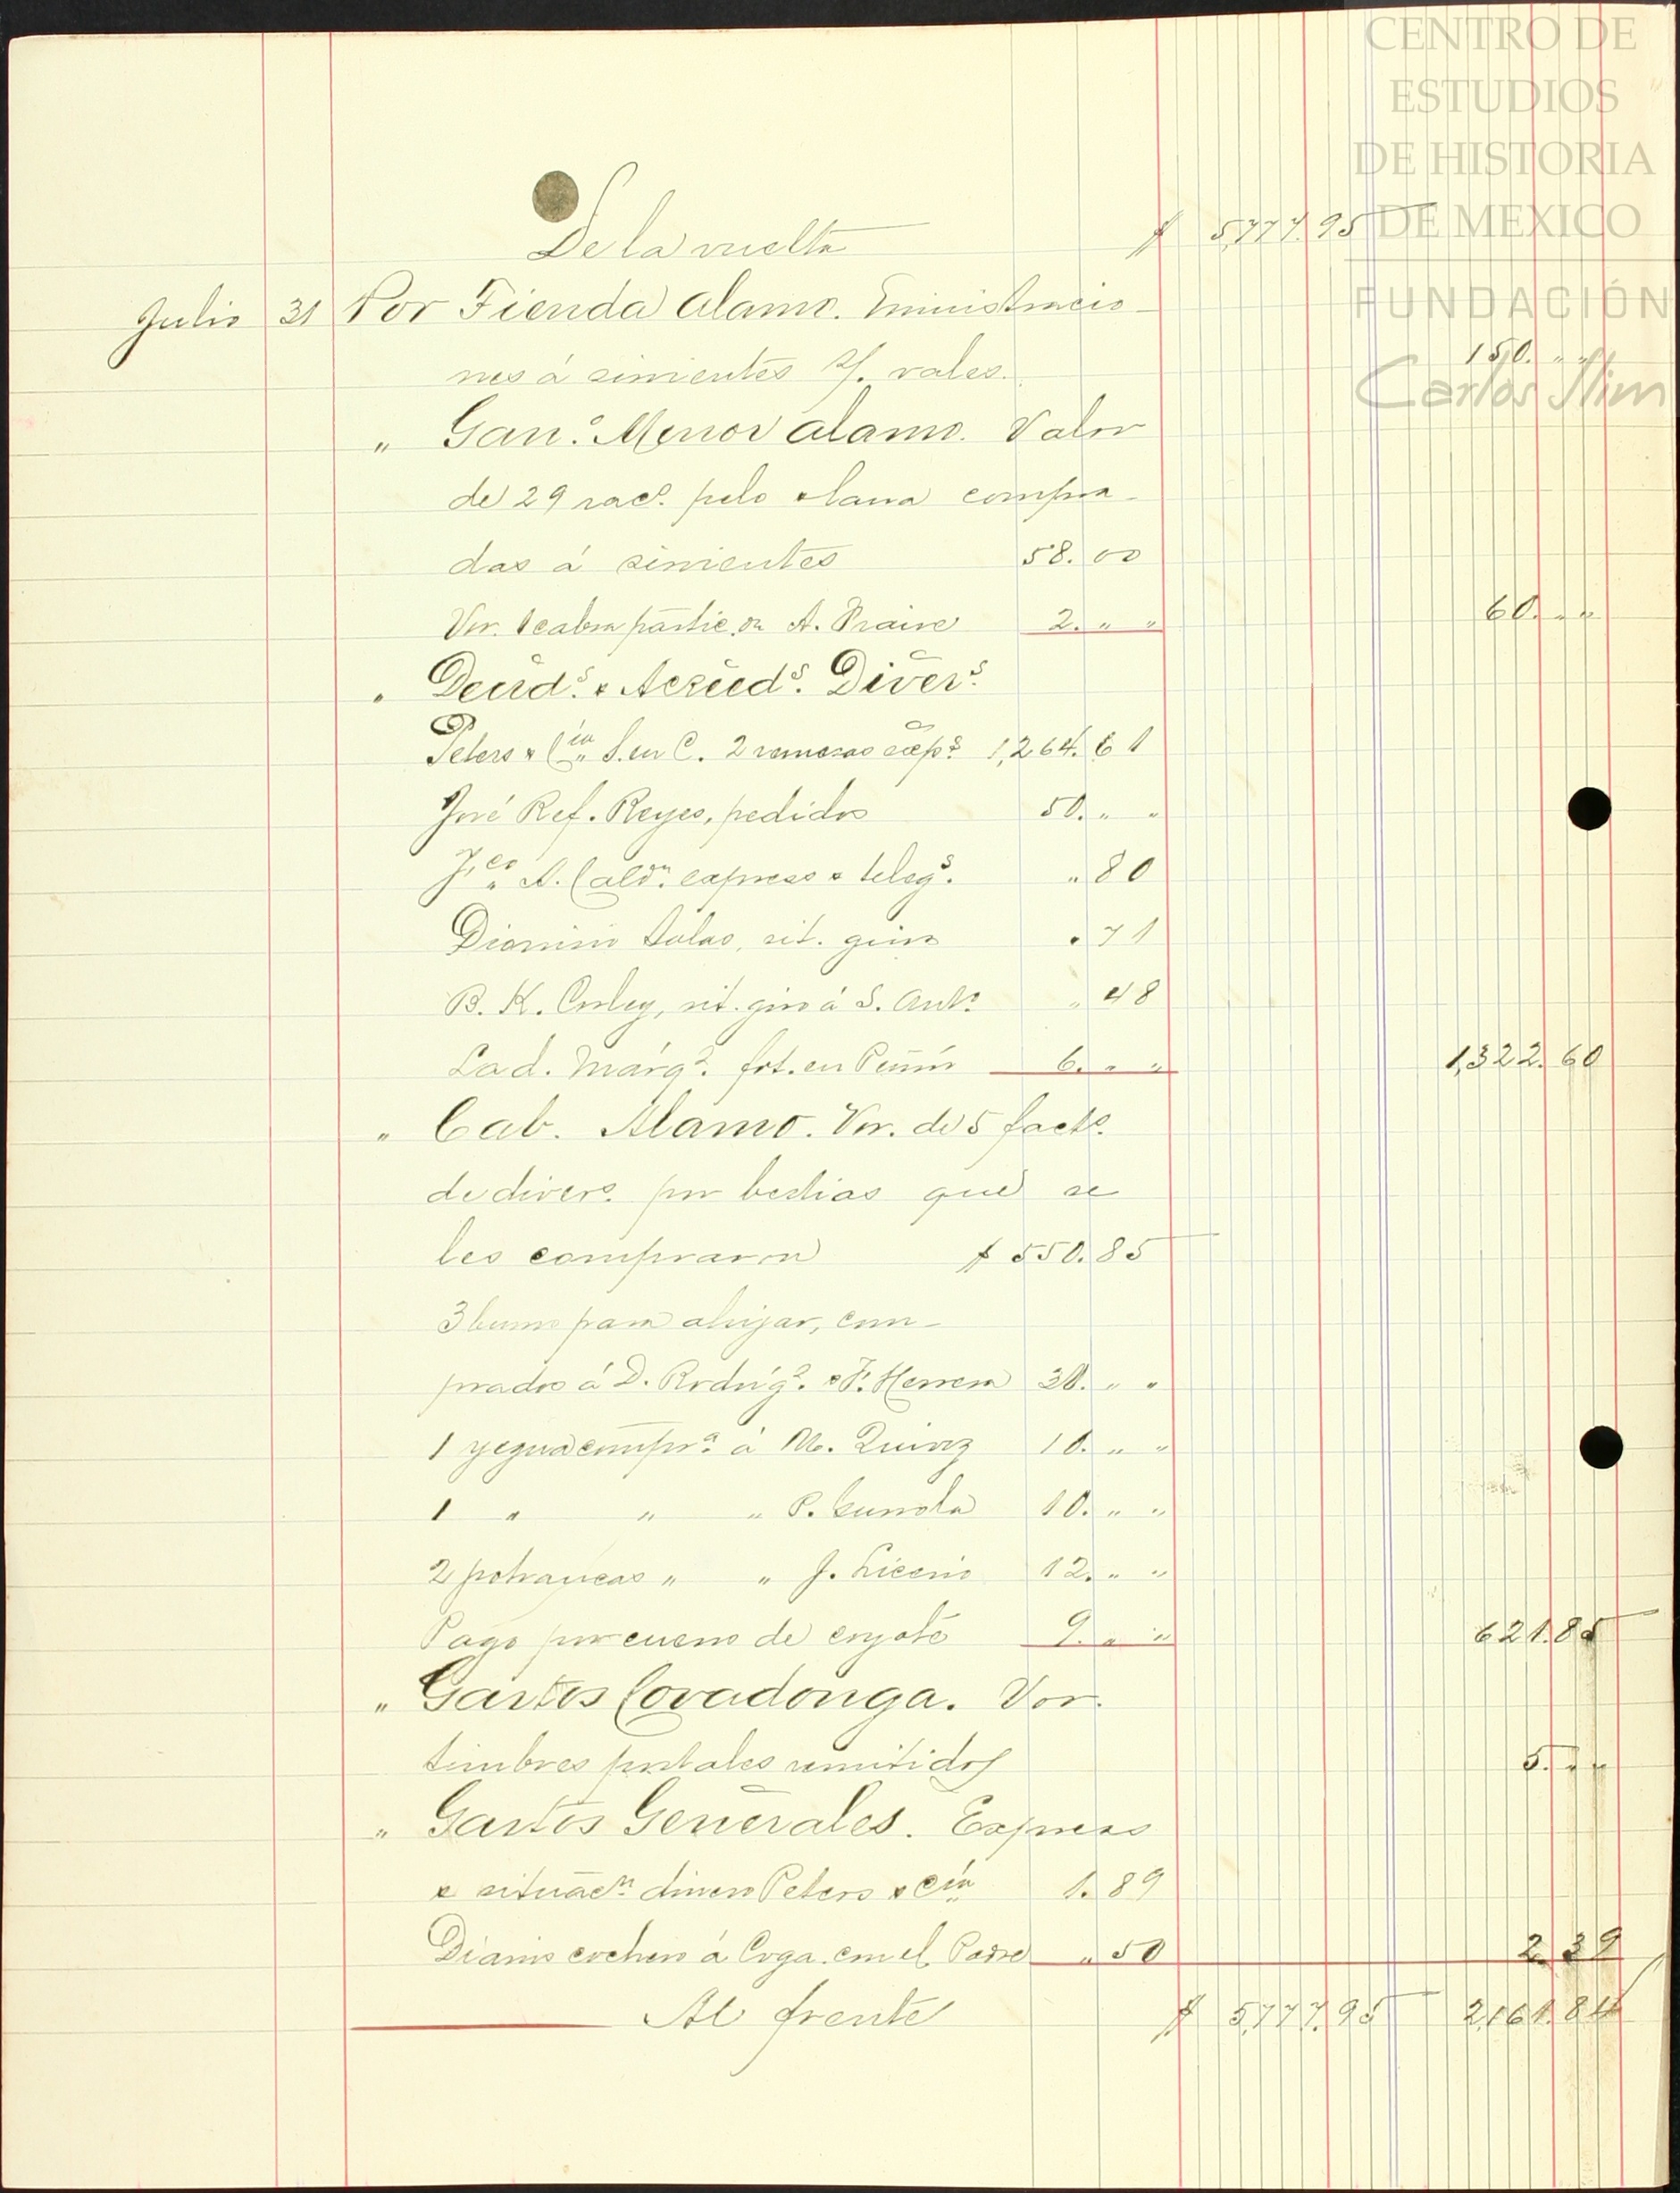 CENTRO DE
ESTUDIOS
DE HISTORIA
DE MEXICO
FUNDACIÓN
Carlos Slim
De la vuelta $ 5,777.95
Julio 31 Por Tienda Alamo. Eministracio-
nes á sirvientes s/. vales. 150. " "
" Gan.º Menor Alamo. Valor
de 29 rac.s pelo & lana compra-
das á sirvientes 58.00
Vor. 1 cabra partic. on A. Praire 2. " " 60. " "
" Deud.s & Acreed.s Divers.
Peters & Cía S. en C. 2 remesas exp.s 1,264.61
José Ref. Reyes, pedidos 50. " "
J. A. Cald.n express & teleg.s " 80
Dionisio Salas, sit. giros " 71
B. K. Corley, sit. giro á S. Ant.º " 48
Lad. Márq.z fot. en Peñón 6. " " 1,322.60
" Cab. Alamo. Vor. de 5 facts.
de divers. por bestias que se
les compraron $ 550.85
3 burros para ahijar, com-
prados á D. Rodríg.z & F. Herrera 30. " "
1 yegua compr.a á M. Quiroz 10. " "
1 " " " P. 10. " "
2 potrancas " " J. Licerio 12. " "
Pago por cueros de coyote 9. " " 621.85
" Gastos Covadonga. Vor.
timbres postales remitidos 5. " "
" Gastos Generales. Express
& situac.n dinero Peters & Cía 1.89
Diario cochero á Coga. con el Padre " 50 2.39
Al frente $ 5,777.95 2,161.84